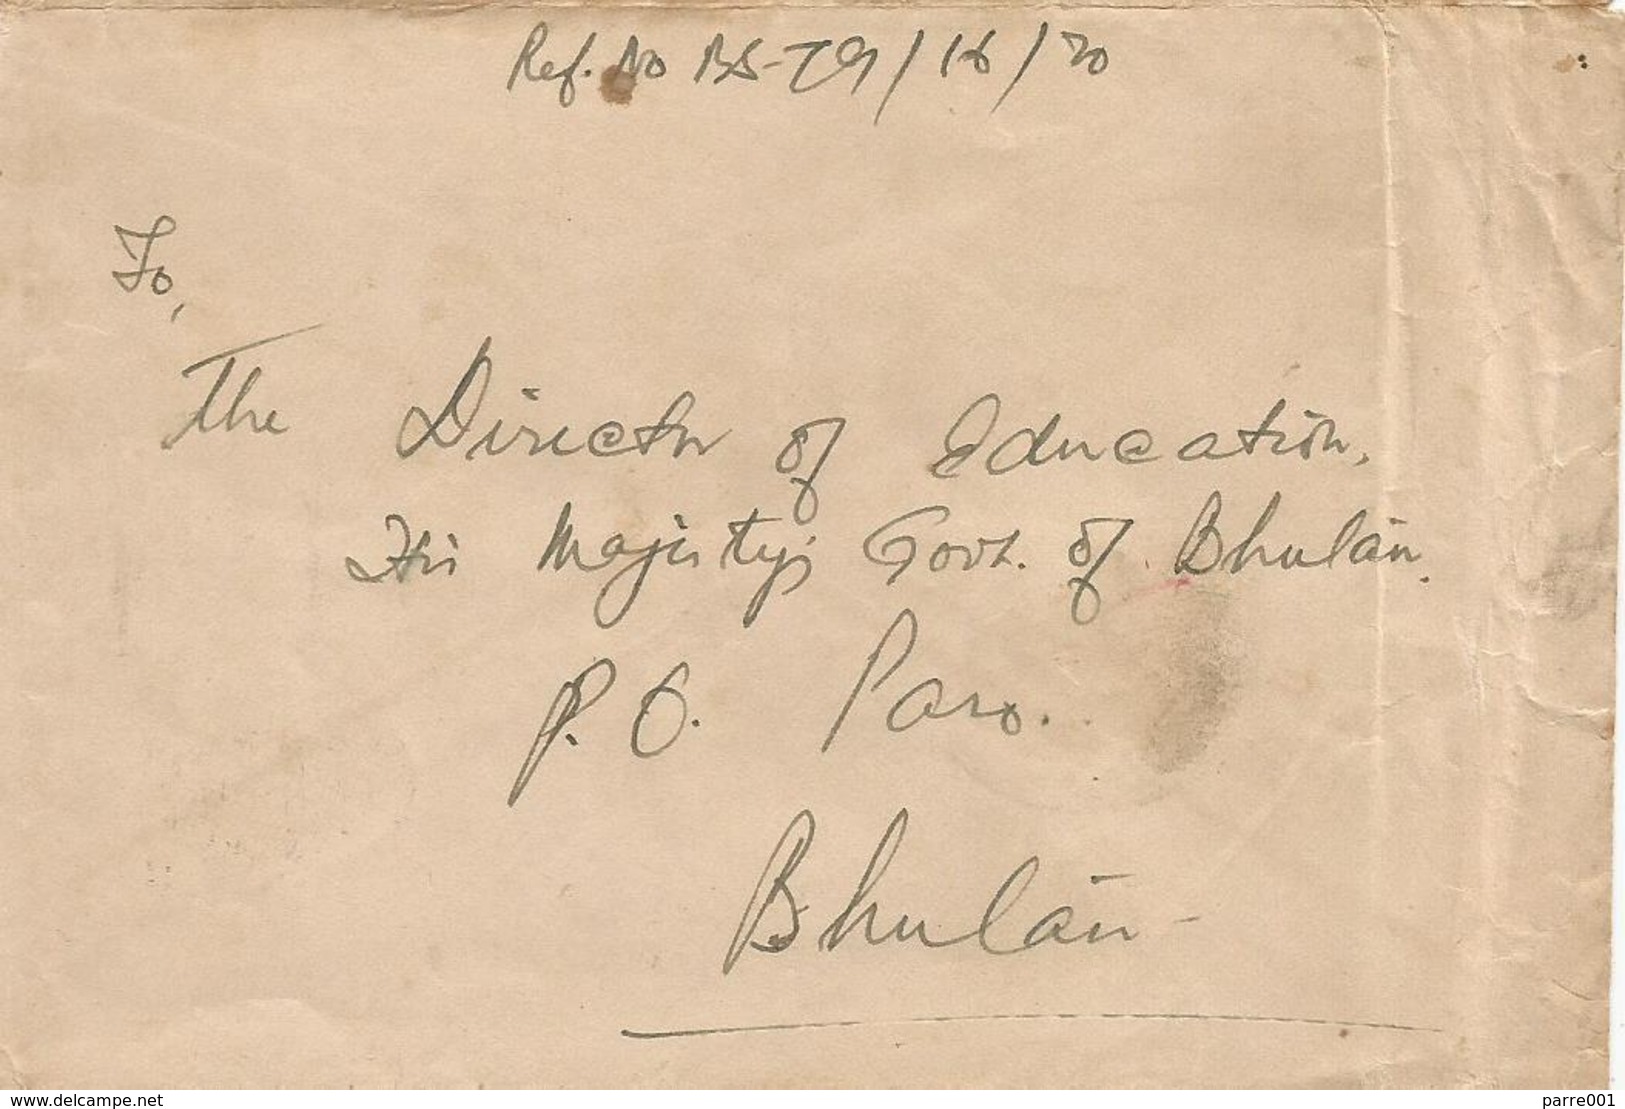 Ref. No BS-79/16/70
To,
The Director of Education,
His Majesty's Govt. of Bhutan.
P.O. Paro.
Bhutan
www.delcampe.net
parre001